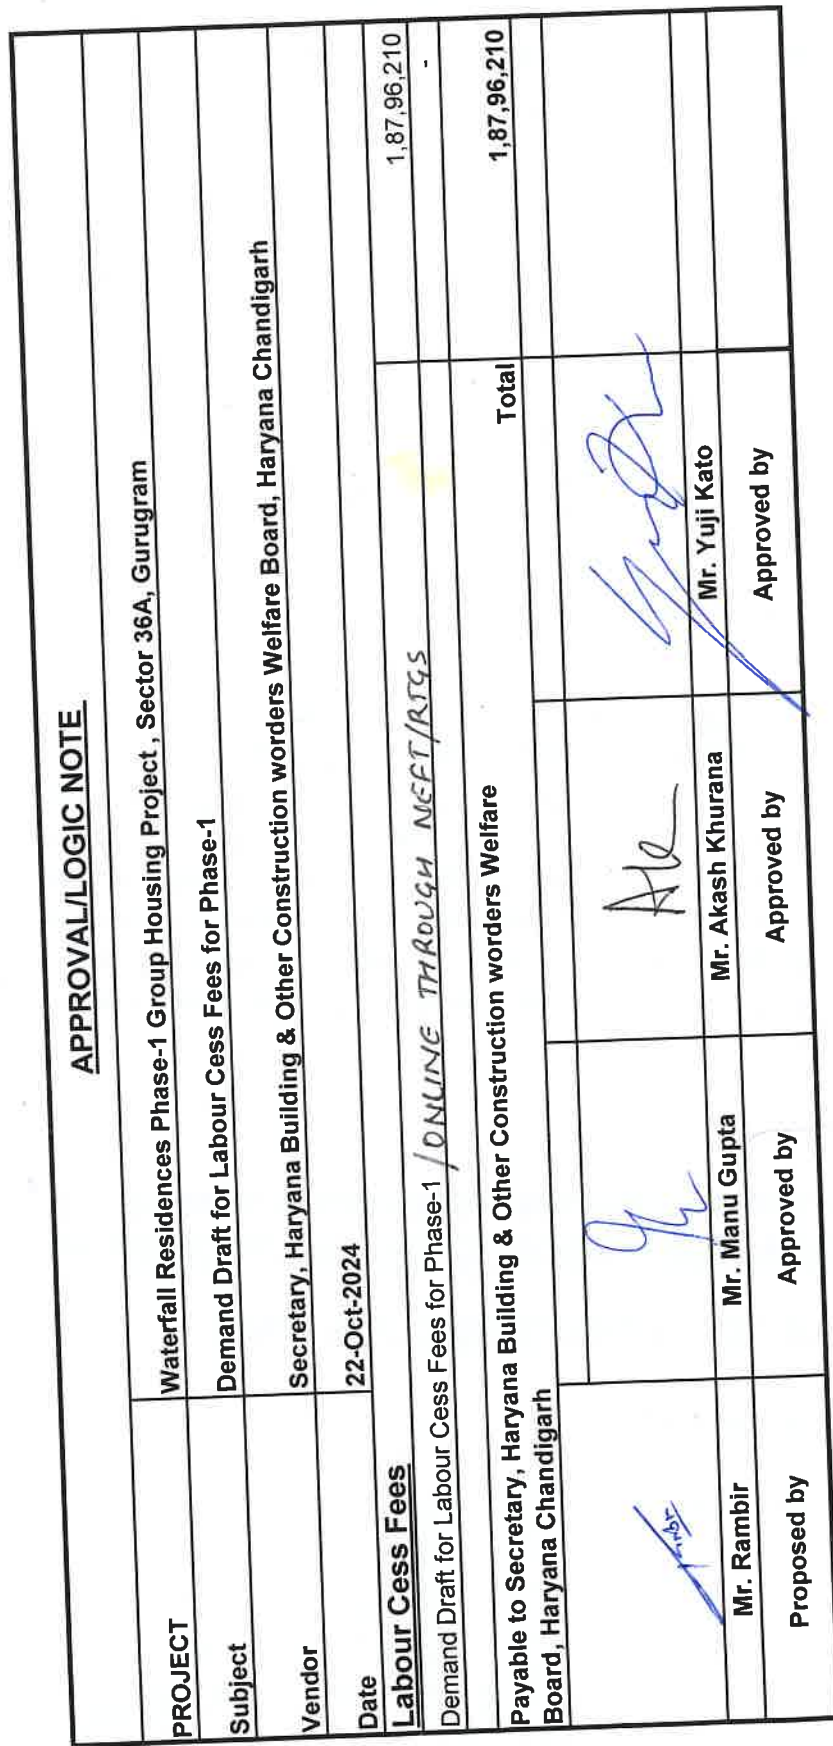 APPROVAL/LOGIC NOTE
PROJECT Waterfall Residences Phase-1 Group Housing Project , Sector 36A, Gurugram
Subject Demand Draft for Labour Cess Fees for Phase-1
Vendor Secretary, Haryana Building & Other Construction worders Welfare Board, Haryana Chandigarh
Date 22-Oct-2024
Labour Cess Fees 1,87,96,210
Demand Draft for Labour Cess Fees for Phase-1 /ONLINE THROUGH NEFT/RTGS -
Total 1,87,96,210
Payable to Secretary, Haryana Building & Other Construction worders Welfare
Board, Haryana Chandigarh
Mr. Rambir Mr. Manu Gupta Mr. Akash Khurana Mr. Yuji Kato
Proposed by Approved by Approved by Approved by